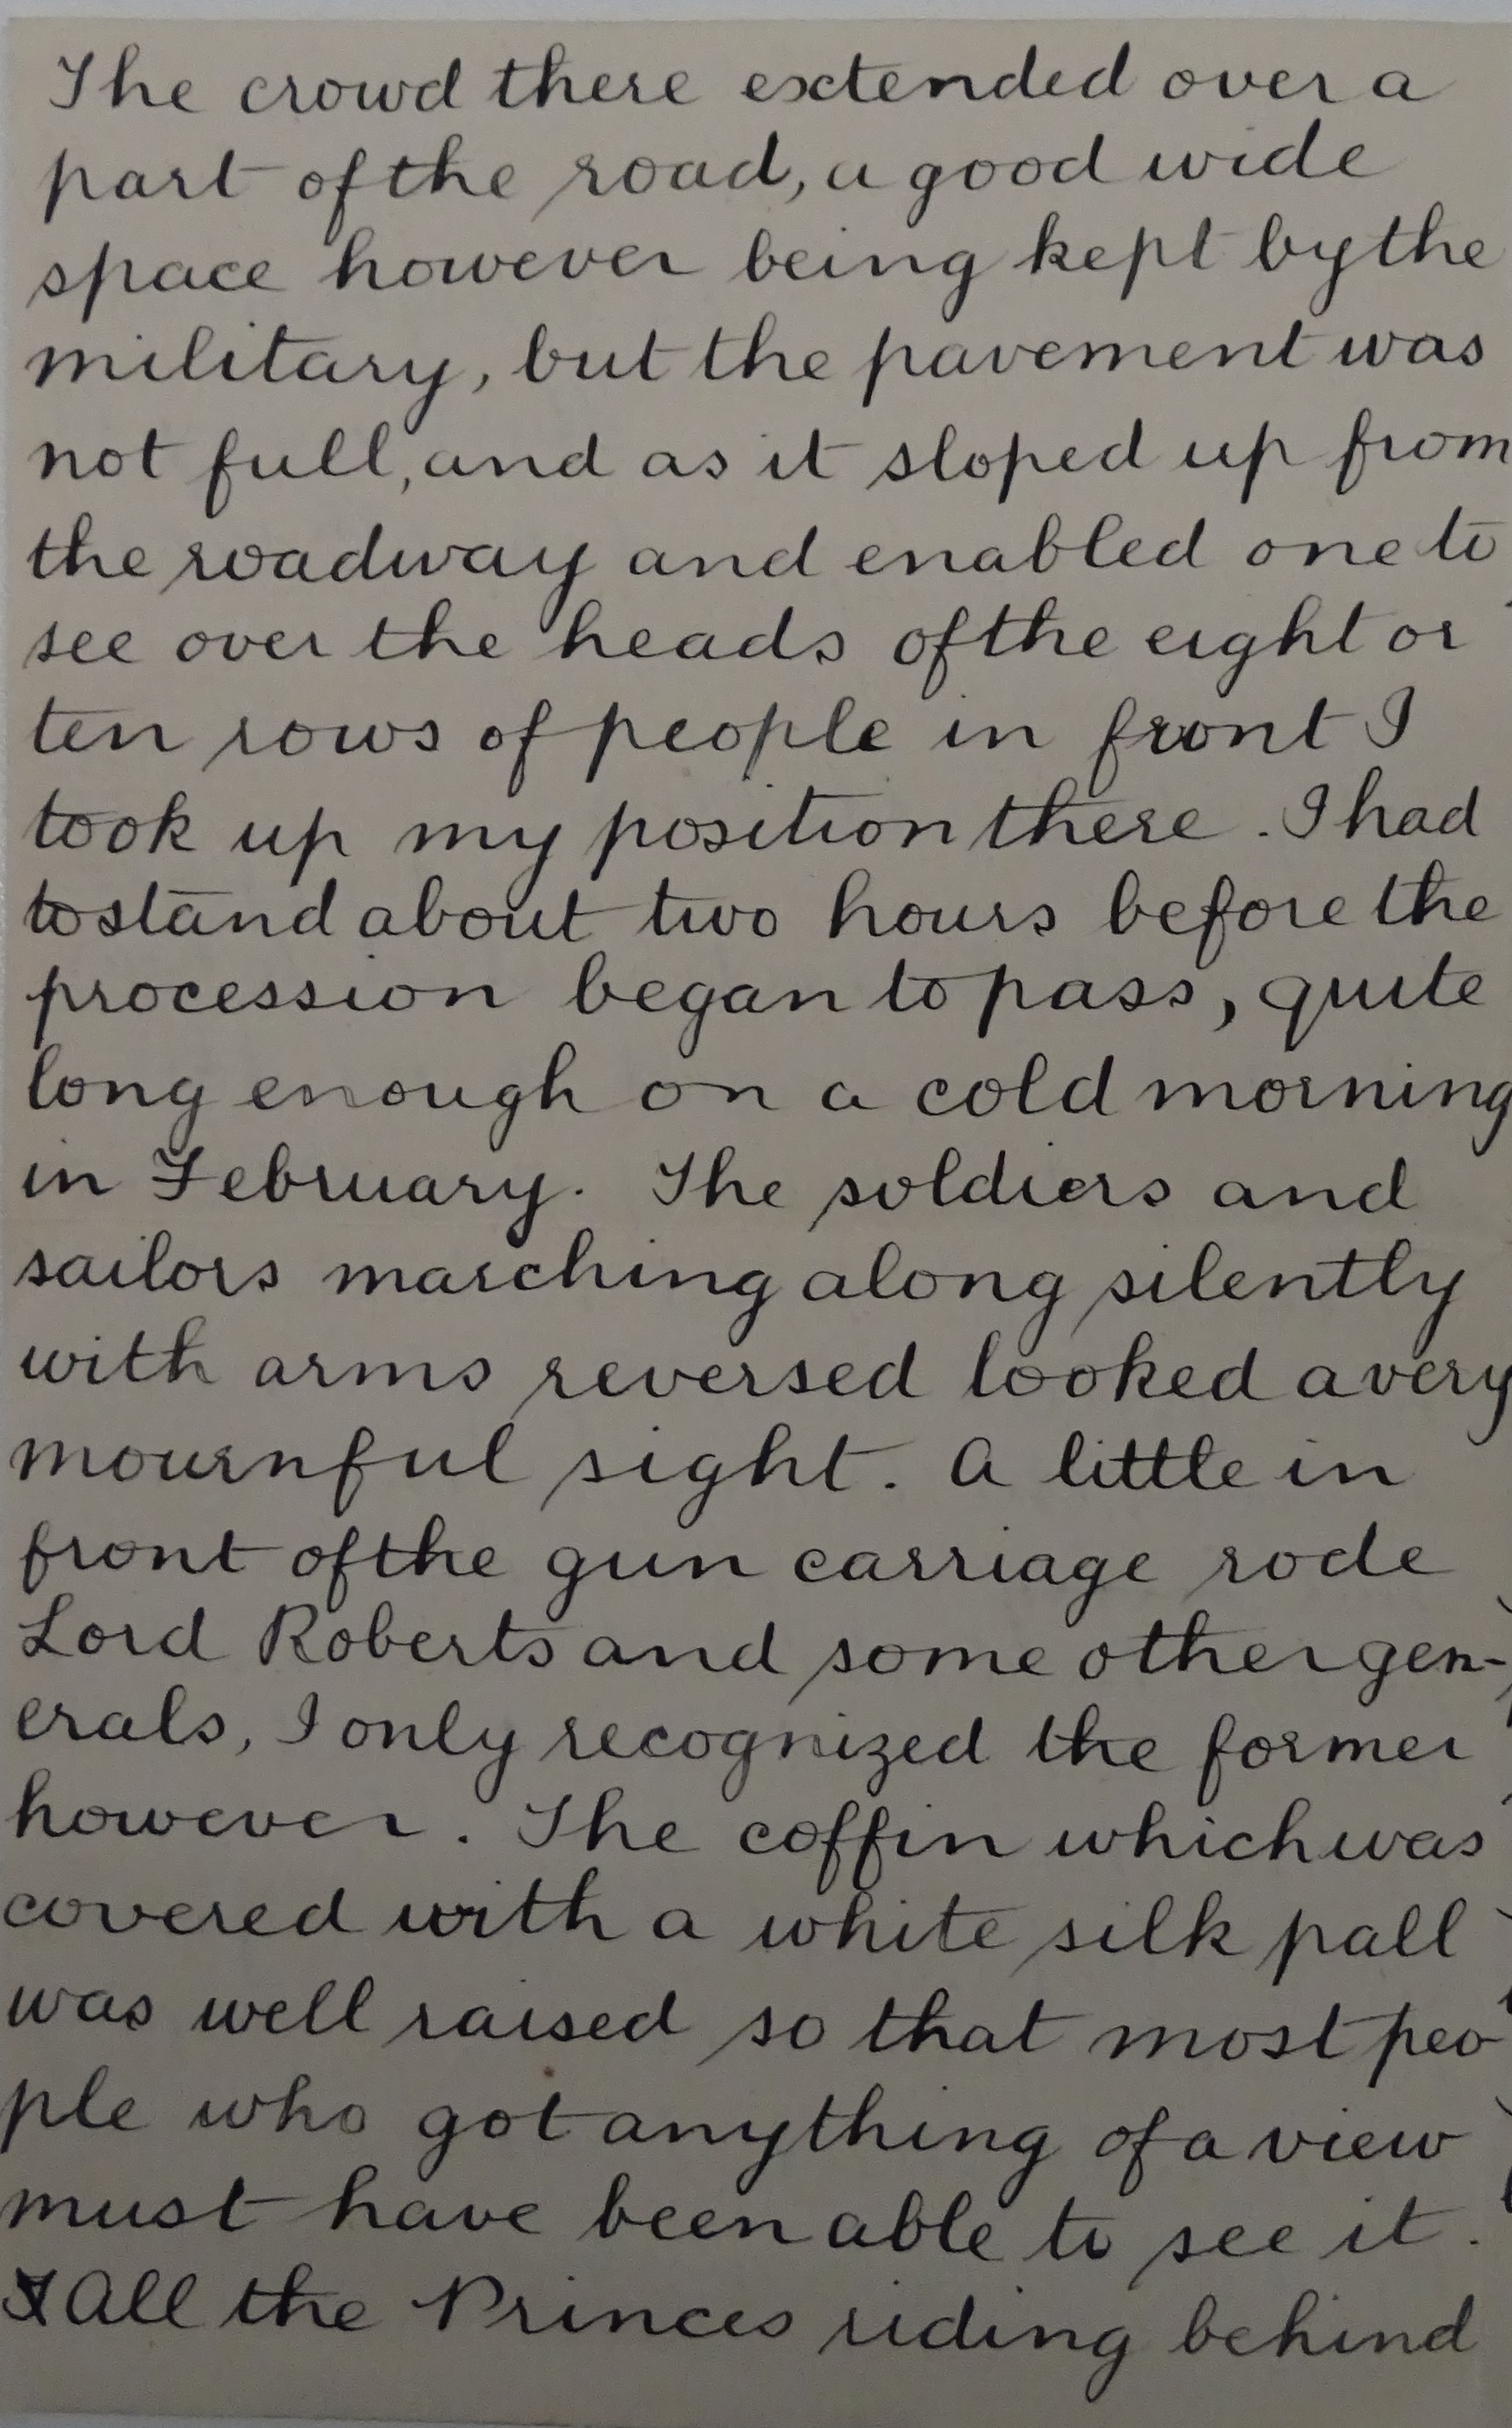 The crowd there extended over a
part of the road, a good wide
space however being kept by the
military, but the pavement was
not full, and as it sloped up from
the roadway and enabled one to
see over the heads of the eight or
ten rows of people in front I
took up my position there. I had
to stand about two hours before the
procession began to pass, quite
long enough on a cold morning
in February. The soldiers and
sailors marching along silently
with arms reversed looked a very
mournful sight. A little in
front of the gun carriage rode
Lord Roberts and some other gen-
erals, I only recognized the former
however. The coffin which was
covered with a white silk pall
was well raised so that most peo
ple who got anything of a view
must have been able to see it.
All the Princes riding behind